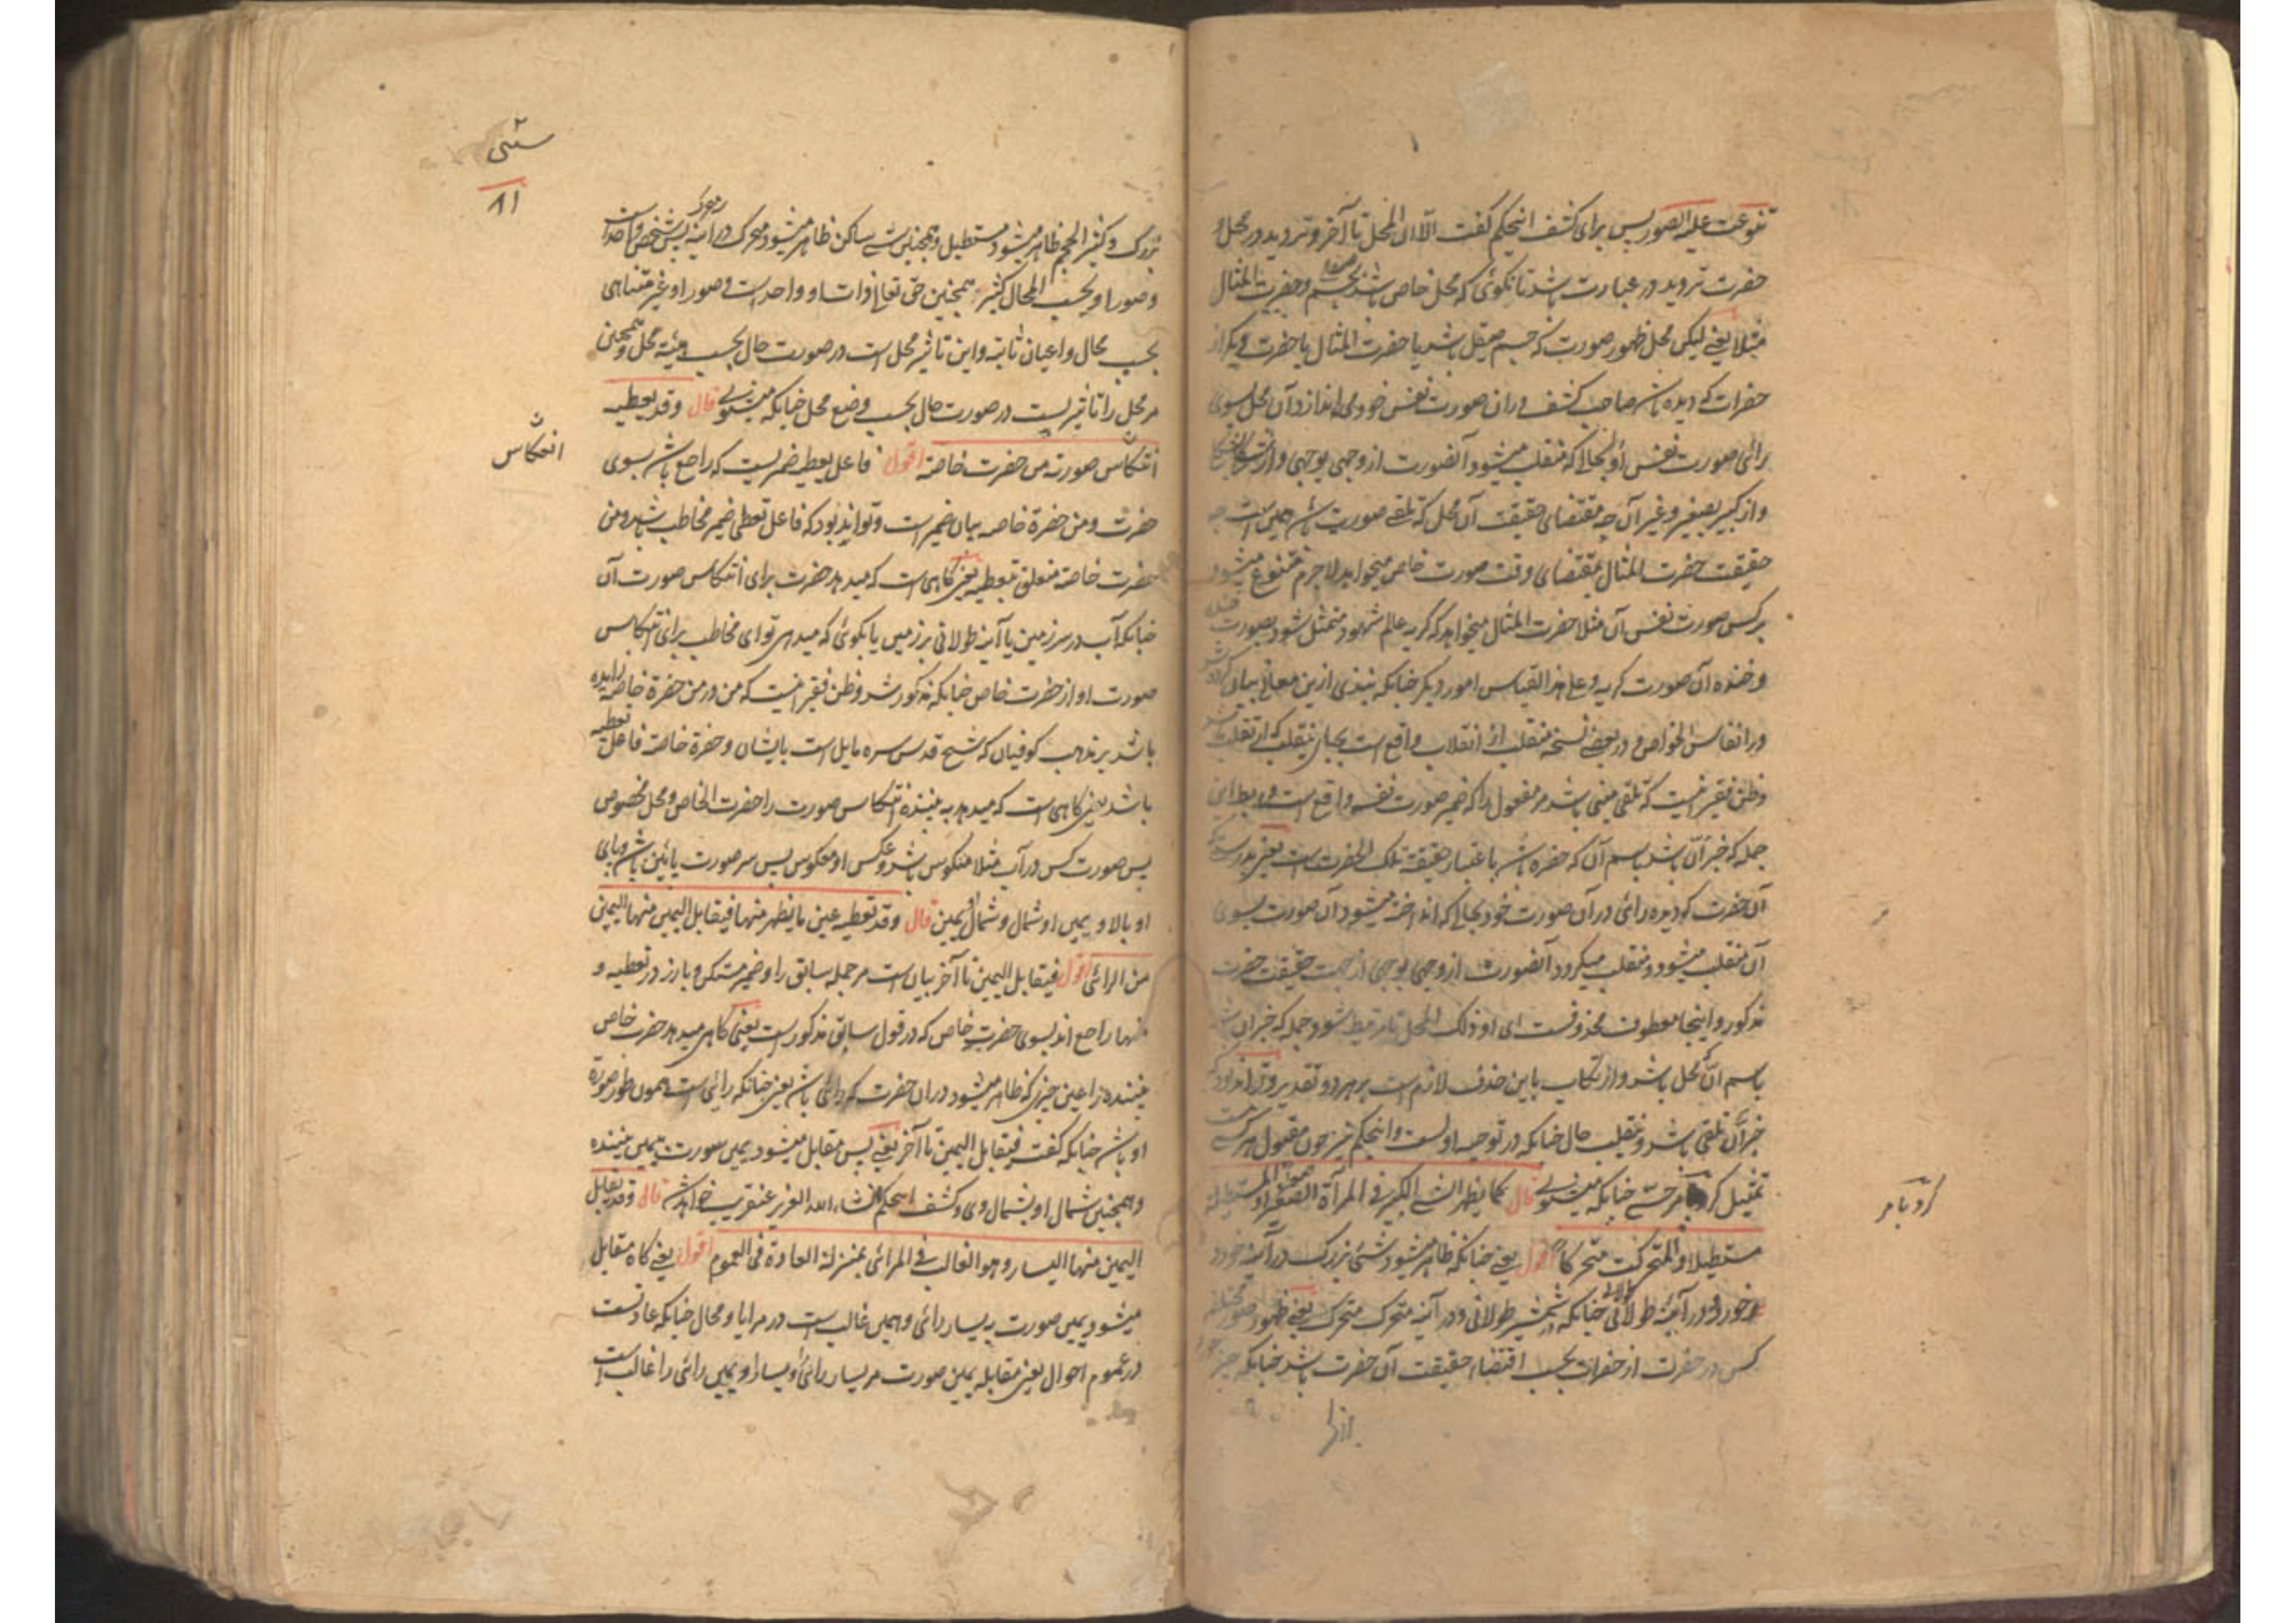 تنوعت علیه الصور پس برای کشف اینحکم گفت الا ان المحل تا آخر و تردید در محل و
حضرت تردید در عبارت باشد تا نگوئی که محل خاص باشد بجسم و حضرت المثال
مثلا یعنی لیکن محل ظهور صورت که جسم صیقل باشد یا حضرت المثال یا حضرت دیگر از
حضرات که دیده باشد صاحب کشف دران صورت نفس خود می اندازد آن محل بسوی
رائی صورت نفس او بحالی که منقلب میشود آنصورت از وجهی بوجهی و از
و از کبیر بصغیر و غیر آن چه مقتضای حقیقت آن محل که تلقی صورت باشد همین است چه
حقیقت حضرت المثال بمقتضای وقت صورت خاص میخواهد لاجرم متنوع میشود
بر کس صورت نفس آن مثلا حضرت المثال میخواهد که گریه عالم شهود متمثل شود بصورت خنده
و خنده آن صورت گریه و علی هذا القیاس امور دیگر چنانکه نبذی ازین معانی بیان کرده شد
در انفاس الخواص و در بعضی نسخه منقلب از انقلاب واقع است بجای ینقلب که از تقلب
وظن فقیر اینست که تلقی مبنی باشد مر مفعول را که ضمیر صورت نفسه واقع است و رابط این
جمله که خبر ان باشد باسم آن که حضره باشد باعتبار حقیقة تلک الحضرت است یعنی بدرستیکه
آن حضرت که دیده رائی در آن صورت خود بحالی که انداخته میشود آن صورت بسوی
آن منقلب میشود و منقلب میگردد آنصورت از وجهی بوجهی از جهت حقیقت حضرت
مذکور و اینجا معطوف محذوفست ای او ذلک المحل تا مرتبط شود جمله که خبر ان باشد
باسم ان که محل باشد و ارتکاب باین حذف لازم است بر هر دو تقدیر و تواند بود که
خبر ان تلقی باشد و ینقلب حال چنانکه در توجیه اولست و اینحکم نیز چون معقول هر کس است
تمثیل کرد بامر حسی چنانکه میشنوی قال کما یظهر الشئ الکبیر فی المرآة الصغیرة صغیرا او المستطیلة
مستطیلا و المتحرکة متحرکا اقول یعنی چنانکه ظاهر میشود شئ بزرگ در آئینه خورد
خورد و در آئینه طولانی طولانی چنانکه در شمشیر طولانی و در آینه متحرک متحرک یعنی ظهور صور مختلفه
کس در حضرت از حضرات بحسب اقتضاء حقیقت آن حضرت باشد چنانکه چیز
کرد بامر
بزرگ و کثیر الحجم ظاهر میشود مستطیل و همچنین شئ ساکن ظاهر میشود متحرک در آینه متحرک پس شخص واحد است
و صور او بحسب المحال کثیر همچنین حق تعالی ذات او واحد است و صور او غیر متناهی
بحسب محال و اعیان ثابته و این تاثیر محل است در صورت حال بحسب هیئة محل و همچنین
مر محل را تاثیریست در صورت حال بحسب وضع محل چنانکه میشنوی قال و قد یعطیه
انتکاس صورته من حضرت خاصة اقول فاعل یعطیه ضمیریست که راجع باشد بسوی
حضرت و من حضرة خاصه بیان ضمیر است و تواند بود که فاعل تعطی ضمیر مخاطب باشد و من
حضرت خاصة متعلق بتعطیه یعنی گاهی است که میدهد حضرت برای انتکاس صورت آن
چنانکه آب در سر زمین یا آینه طولانی بر زمین یا بگوئی که میدهی تو ای مخاطب برای انتکاس
صورت او از حضرت خاص چنانکه مذکور شد و ظن فقیر اینست که من در من حضرة خاصه زایده
باشد بر مذهب کوفیان که شیخ قدس سره مایل است بایشان و حضرة خاصة فاعل تعطیه
باشد یعنی گاهی است که میدهد به بیننده انتکاس صورت را حضرت الخاص و محل مخصوص
پس صورت کس در آب مثلا منکوس باشد و عکس او معکوس پس سر صورت پائین باشد و پای
او بالا و یمین او شمال و شمال او یمین قال و قد تعطیه عین ما یظهر منها فیقابل الیمین منها الیمین
من الرائی اقول فیقابل الیمین تا آخر بیان است مر جمله سابق را و ضمیر مستکن و بارز در تعطیه و
منها راجع اند بسوی حضرت خاص که در قول سابق مذکور است یعنی گاهی میدهد حضرت خاص
بیننده را عین چیزی که ظاهر میشود دران حضرت که رائی باشد یعنی چنانکه رائی است همون طور صورة
او باشد چنانکه گفت فیقابل الیمین تا آخر یعنی پس مقابل میشود یمین صورت بیمین بیننده
و همچنین شمال او بشمال وی و کشف اینحکم انشاء الله العزیز عنقریب خواهد شد قال و قد یقابل
الیمین منها الیسار و هو الغالب فی المرائی بمنزلة العادة فی العموم اقول یعنی گاه مقابل
میشود یمین صورت به یسار رائی و همین غالب است در مرایا و محال چنانکه عادتست
در عموم احوال یعنی مقابله یمین صورت مر یسار رائی و یسار او یمین رائی را غالب است
۸۱
انعکاس